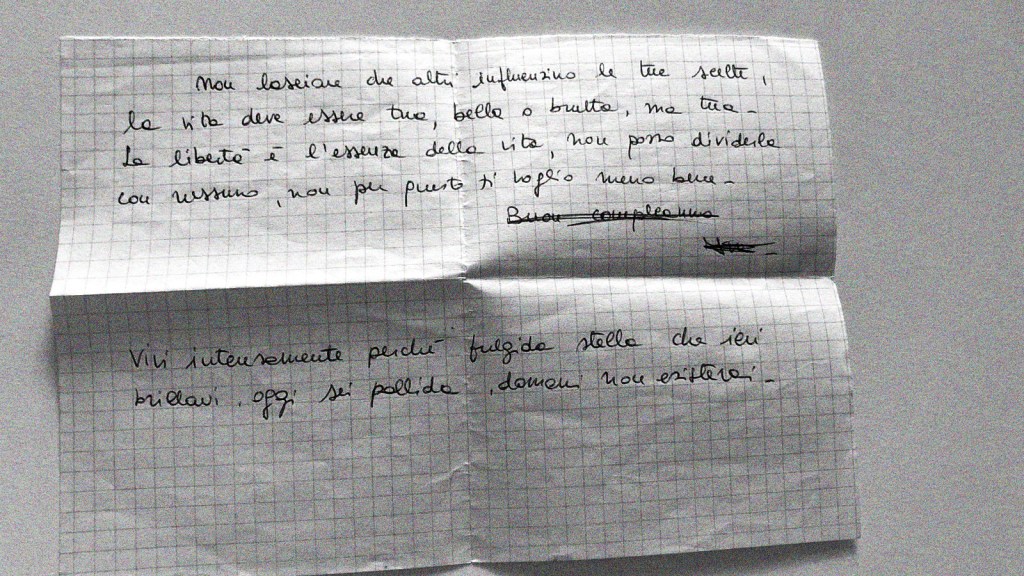 Non lasciare che altri influenzino le tue scelte,
la vita deve essere tua, bella o brutta, ma tua -
La libertà è l'essenza della vita, non posso dividerla
con nessuno, non per questo ti voglio meno bene -
Buon compleanno
Vivi intensamente perché fulgida stella che ieri
brillavi, oggi sei pallida, domani non esisterai -